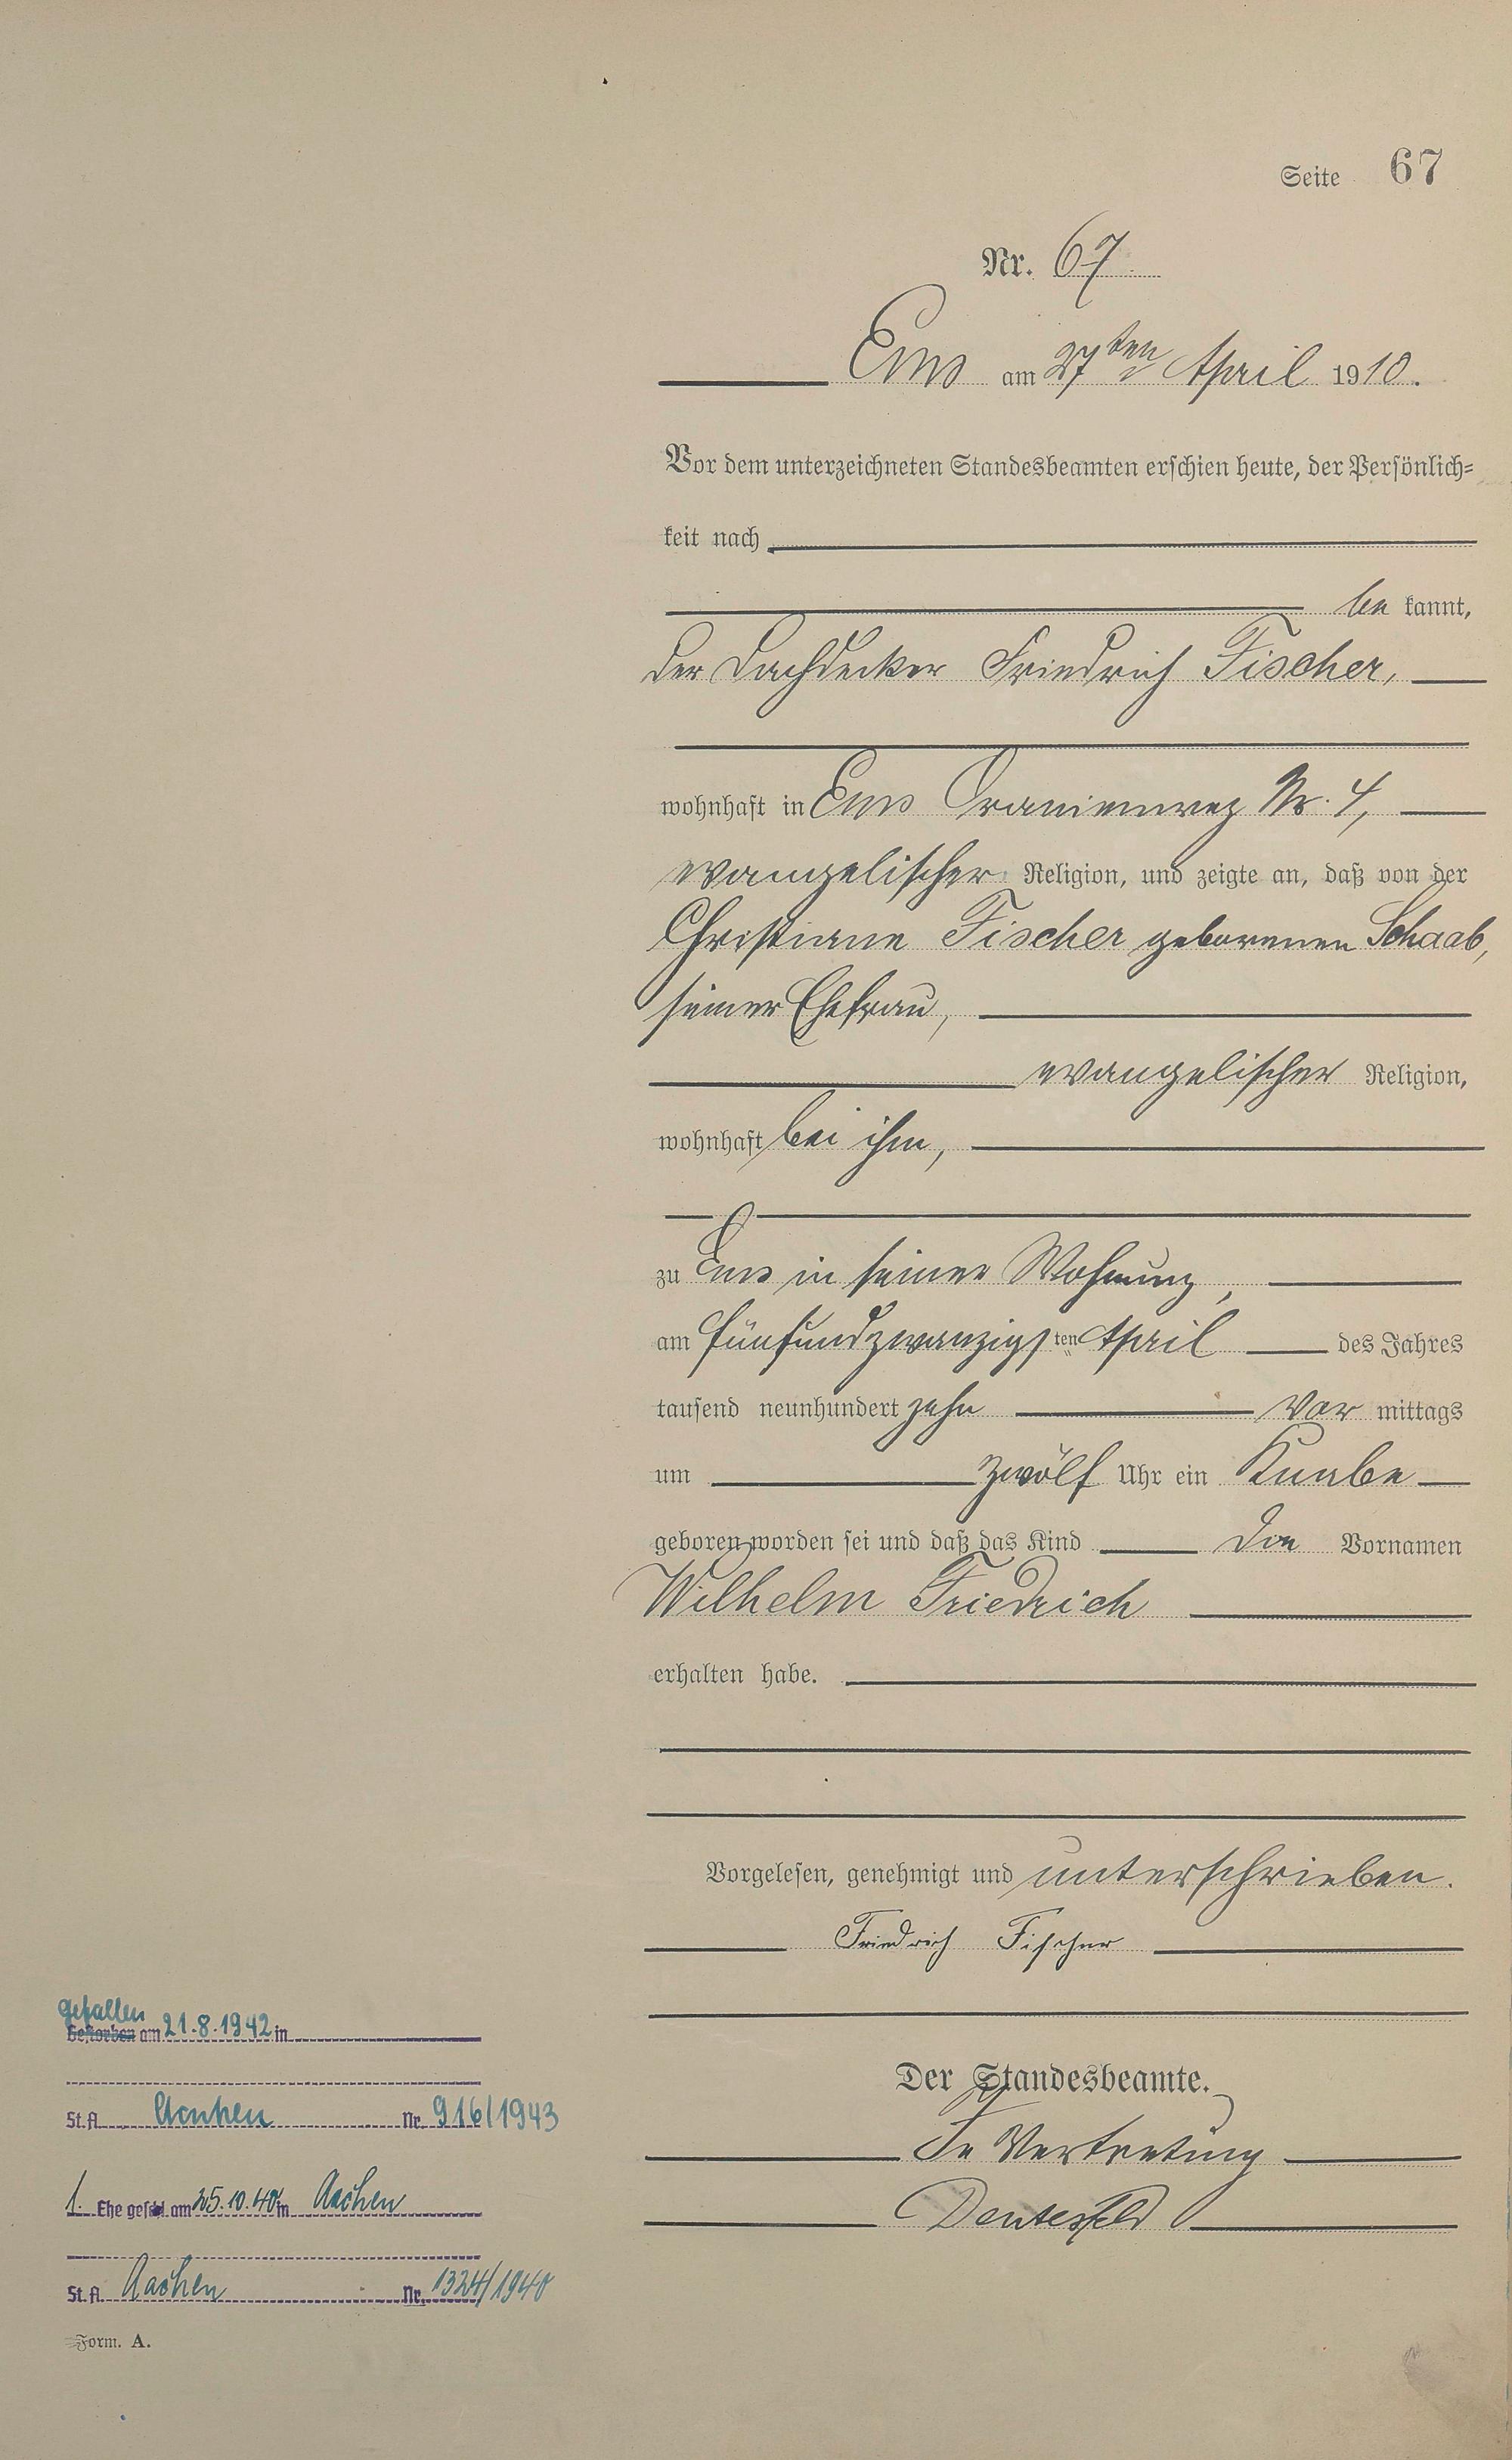 Seite 67
Nr. 67
Ems am 27ten April 1910.
Vor dem unterzeichneten Standesbeamten erschien heute, der Persönlich-
keit nach
be kannt,
der Dachdecker Friedrich Fischer,
wohnhaft in Ems Oranienweg Nr. 4,
evangelischer Religion, und zeigte an, daß von der
Christiane Fischer geborenen Schaab,
seiner Ehefrau,
evangelischer Religion,
wohnhaft bei ihm,
zu Ems in seiner Wohnung,
am fünfundzwanzigsten April des Jahres
tausend neunhundert zehn Vor mittags
um zwölf Uhr ein Knabe
geboren worden sei und daß das Kind die Vornamen
Wilhelm Friedrich
erhalten habe.
Vorgelesen, genehmigt und unterschrieben.
Friedrich Fischer
Der Standesbeamte.
In Vertretung
gefallen
Gestorben am 21.8.1942 in
St.A. Aachen Nr. 916/1943
1. Ehe geschl am 25.10.40 in Aachen
St.A. Aachen Nr. 1324/1940
Form. A.